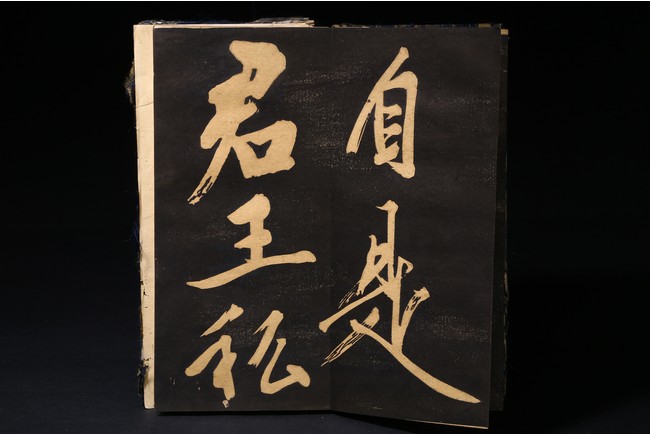 自是
君王私